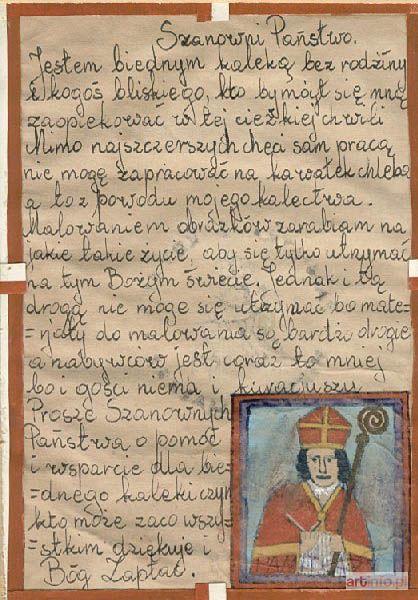 Szanowni Państwo.
Jestem biednym kaleką bez rodziny
i kogoś bliskiego, kto by mógł się mną
zaopiekować w tej cieżkiej chwili
Mimo najszczerszych chęci sam pracą
nie mogę zapracować na kawałek chleba
a to z powodu mojego kalectwa.
Malowaniem obrazków zarabiam na
jakie takie życie, aby się tylko utrzymać
na tym Bożym świecie. Jednak i tą
drogą nie moge się utrzymać bo mate-
=rjały do malowania są bardzo drogie
a nabywców jest coraz to mniej
bo i gości niema i
Prosze Szanownych
Państwa o pomoc
i wsparcie dla bie-
=dnego kaleki czym
kto może za co wszy-
=stkim dziękuje i
Bóg Zapłać.
artinfo.pl